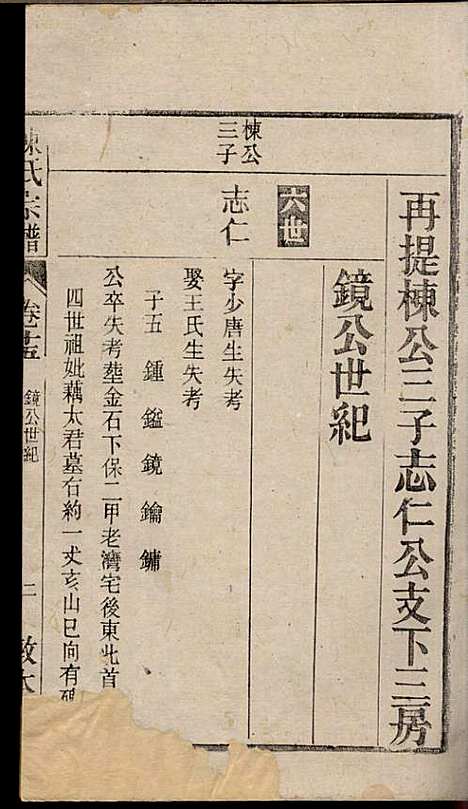 再提棟公三子志仁公支下三房
鏡公世紀
六世
棟公
三子
志仁
字少唐生失考
娶王氏生失考
子五 鍾 鎰 鏡 鑰 鏞
公卒失考塟金石下保二甲老灣宅後東北首
四世祖妣藕太君墓右約一丈亥山巳向有碑
陳氏宗譜
卷十五
鏡公世紀
二
敦本